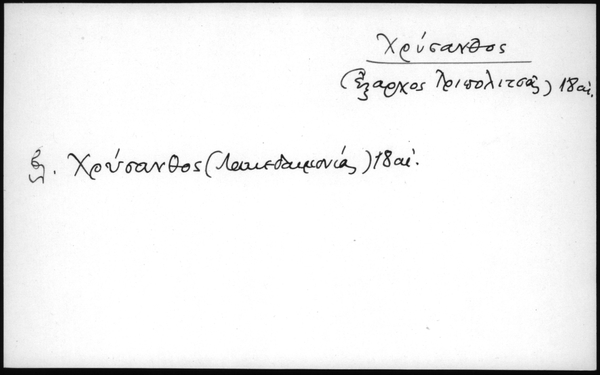 Χρύσανθος
(ἔξαρχος Τριπολιτσᾶς) 18 αἰ.
βλ. Χρύσανθος (Λακεδαιμονίας) 18 αἰ.